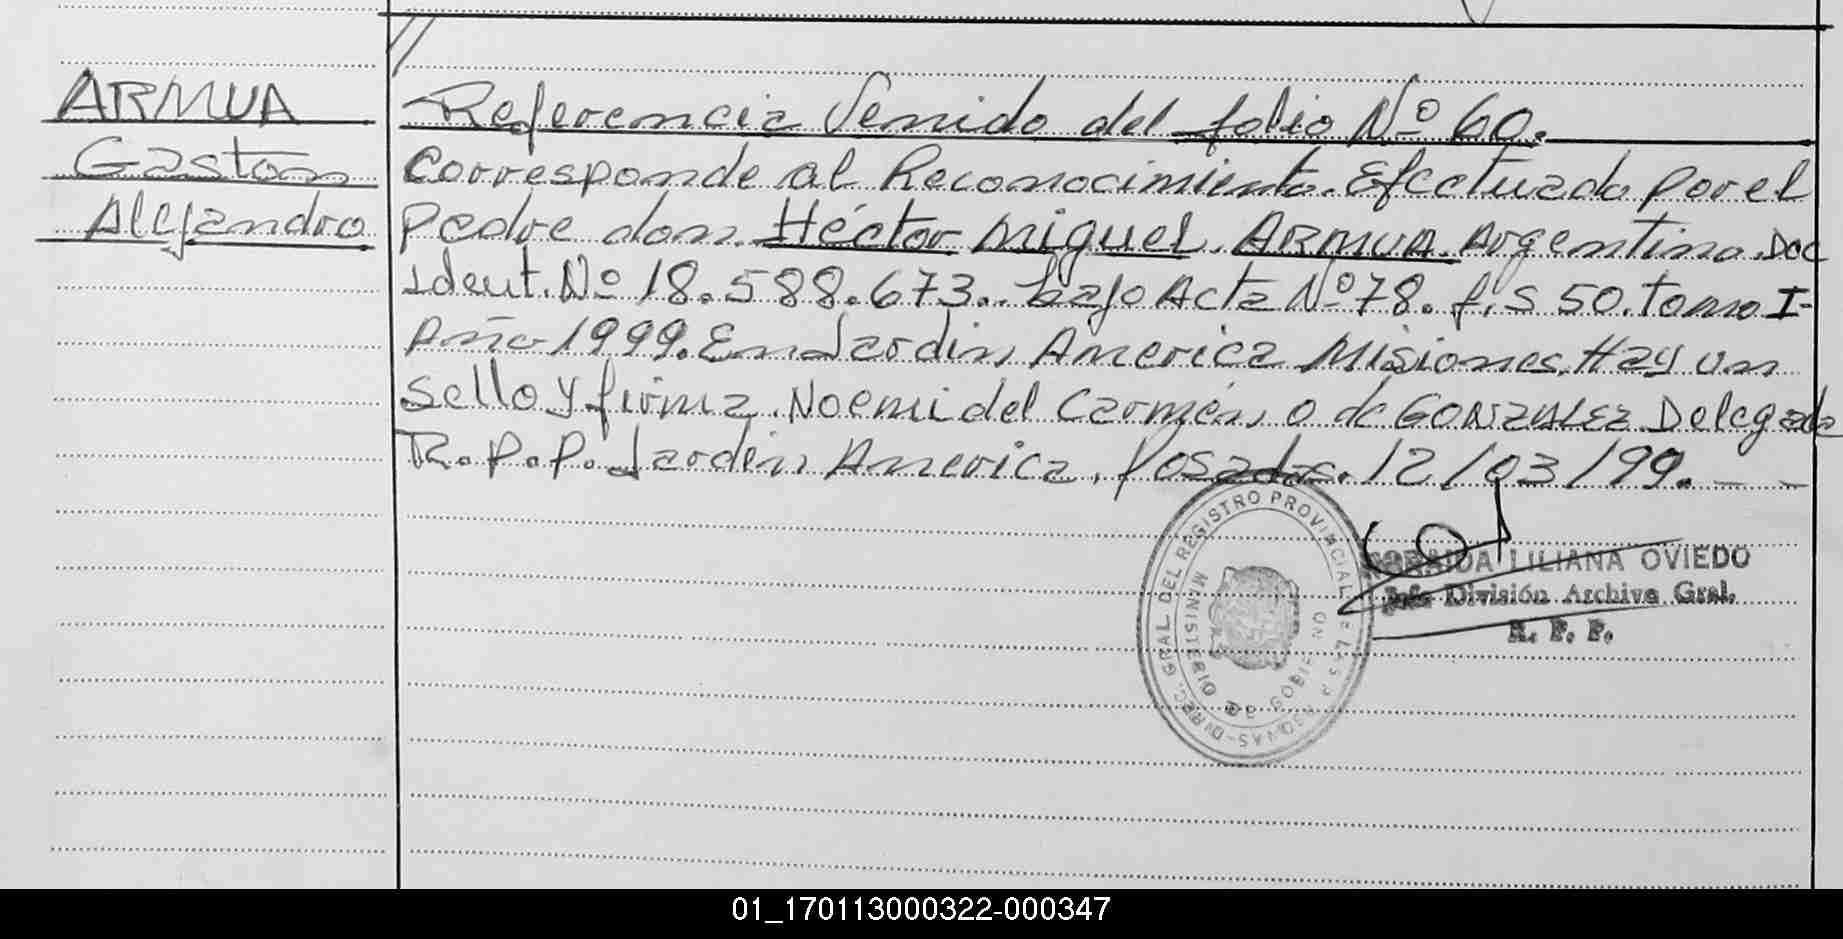 ARMUA
Gastón
Alejandro
Referencia Venido del folio Nº 60.
Corresponde al Reconocimiento. Efectuado por el
padre don. Héctor Miguel. ARMUA. Argentino. Doc
Ident. Nº 18.588.673.. bajo Acta Nº 78. f.s 50. tomo I-
Año 1999. En Jardín America Misiones. Hay un
sello y firma. Noemi del Carmen, O de GONZALEZ. Delegada
R.P.P. Jardín America. Posadas. 12/03/99. - -
DIREC. GRAL. DEL REGISTRO PROVINCIAL DE LAS PERSONAS
MINISTERIO DE GOBIERNO
LILIANA OVIEDO
Jefe División Archivo Gral.
R. P. P.
01_170113000322-000347